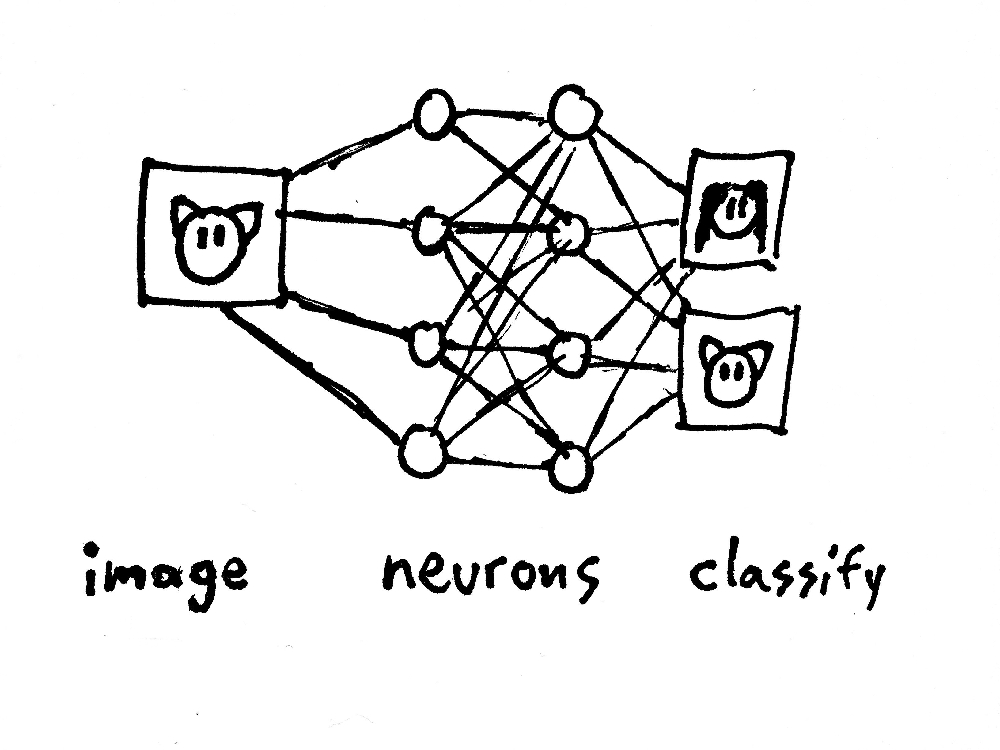 image neurons classify